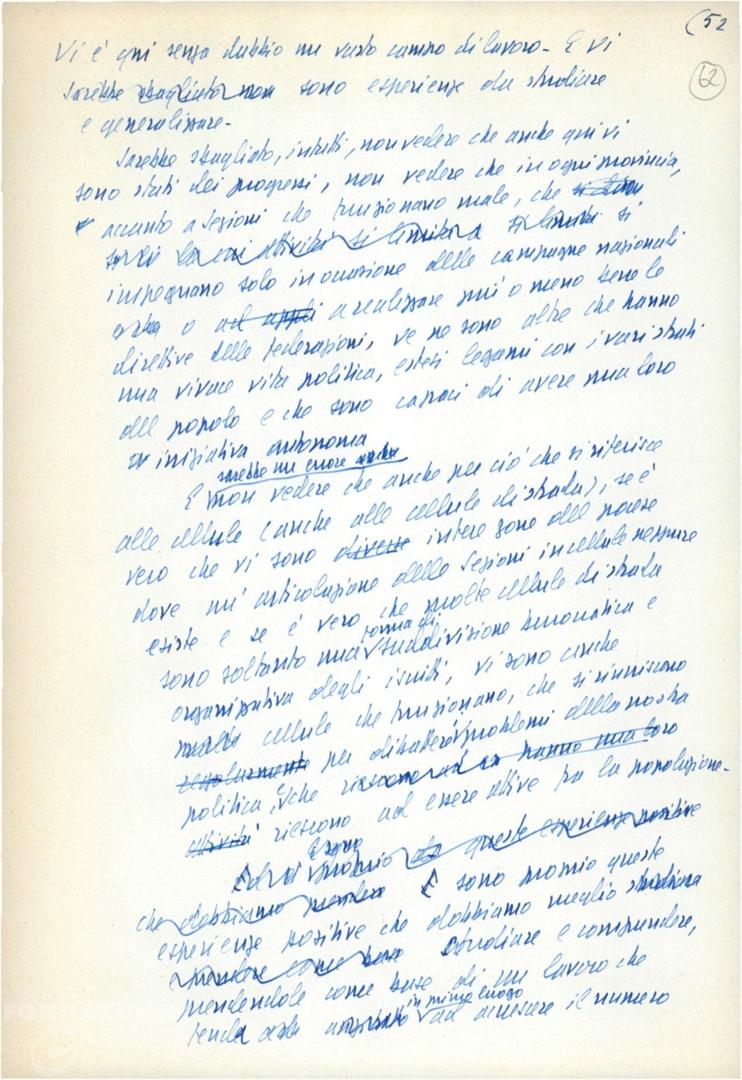 (52
62
Vi è qui senza dubbio un vasto campo di lavoro - E vi
sarebbe sbagliato non sono esperienze da studiare
e generalizzare -
Sarebbe sbagliato, infatti, non vedere che anche qui vi
sono stati dei progressi, non vedere che in ogni provincia,
accanto a sezioni che funzionano male, che
la cui attività si limita a si limita si
impegnano solo in occasione delle campagne nazionali
o ad appli a realizzare più o meno bene le
direttive delle federazioni, ve ne sono altre che hanno
una vivace vita politica, estesi legami con i vari strati
del popolo e che sono capaci di avere una loro
iniziativa autonoma
sarebbe un errore anche
E non vedere che anche per ciò che si riferisce
alle cellule (anche alle cellule di strada), se è
vero che vi sono diverse intere zone del paese
dove un'articolazione delle sezioni in cellule neppure
esiste e se è vero che molte cellule di strada
forma di
sono soltanto una suddivisione burocratica e
organizzativa degli iscritti, vi sono anche
molte cellule che funzionano, che si riuniscono
regolarmente per dibattere i problemi della nostra
politica, che riescono ad hanno una loro
attività riescono ad essere attive fra la popolazione -
E sono
proprio da queste esperienze positive
che dobbiamo prendere E sono proprio queste
esperienze positive che dobbiamo meglio studiare
e prendere come base studiare e comprendere,
prendendole come base di un lavoro che
in primo luogo
tenda ad accrescere il numero